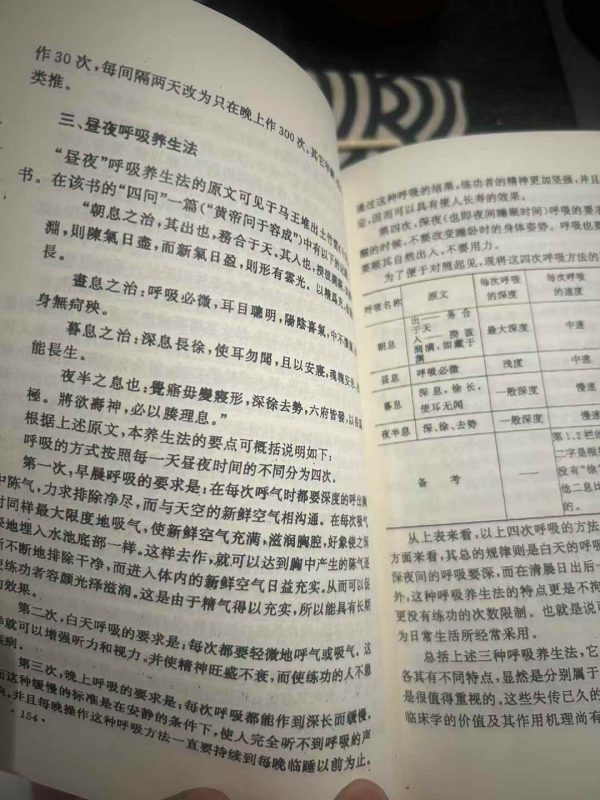 作30次，每间隔两天改为只在晚上作300次，其它
类推。
三、昼夜呼吸养生法
“昼夜”呼吸养生法的原文可见于马王堆出土竹
书。在该书的“四问”一篇(“黄帝问于容成”)中有以下
“朝息之治，其出也，務合于天，其人也，揆彼閨
淵，則陳氣日盡，而新氣日盈，則形有雲光。以精爲充，
長。
晝息之治：呼吸必微，耳目聰明，陽陰喜氣，中不
身無苛殃。
暮息之治：深息長徐，使耳勿聞，且以安寢，魂魄安形，
能長生。
夜半之息也：覺寤毋變寢形，深徐去勢，六府皆發，以長爲
極。將欲壽神，必以腠理息。”
根据上述原文，本养生法的要点可概括说明如下：
呼吸的方式按照每一天昼夜时间的不同分为四次。
第一次，早晨呼吸的要求是：在每次呼气时都要深度的呼出胸
中陈气，力求排除净尽，而与天空的新鲜空气相沟通。在每次吸气
时同样最大限度地吸气，使新鲜空气充满，滋润胸腔，好象使之深
深地埋入水池底部一样。这样去作，就可以达到胸中产生的陈气逐
渐不断地排除干净，而进入体内的新鲜空气日益充实。从而可以促
使练功者容颜光泽滋润。这是由于精气得以充实，所以能具有长期
的效果。
第二次，白天呼吸的要求是：每次都要轻微地呼气或吸气，这
样就可以增强听力和视力。并使精神旺盛不衰，而使练功的人不患
疾病。
第三次，晚上呼吸的要求是：每次呼吸都能作到深长而缓慢，
而这种缓慢的标准是在安静的条件下，使人完全听不到呼吸的声
响，并且每晚操作这种呼吸方法一直要持续到每晚临睡以前为止。
·154·
通过这种呼吸的结果，练功者的精神更加坚强，并且
定，因而可以具有使人长寿的效果。
第四次，深夜(也即夜间睡眠时间)呼吸的要求
醒的时候，不要改变睡卧时的身体姿势。呼吸也要
要顺其自然出入，不要用力。
为了便于对照起见，现将这四次呼吸方法的
呼吸名称 原文 每次呼吸的深度 每次呼吸的速度
朝息 出——务合于天 入——揆波润满，如藏于渊 最大深度 中速
昼息 呼吸必微 浅度 中速
暮息 深息，徐长，使耳无闻 一般深度 慢速
夜半息 深、徐、去势 一般深度 慢速
备考 —— —— 第1.2栏的
二字是根
没有“徐
他二息比
的。
从上表来看，以上四次呼吸的方法
方面来看，其总的规律则是白天的呼吸
深夜间的呼吸要深，而在清晨日出后一
外，这种呼吸养生法的特点更是不拘
更没有练功的次数限制。也就是说可
为日常生活所经常采用。
总括上述三种呼吸养生法，它
各具有不同特点，显然是分别属于
是很值得重视的。这些失传已久的
临床学的价值及其作用机理尚有